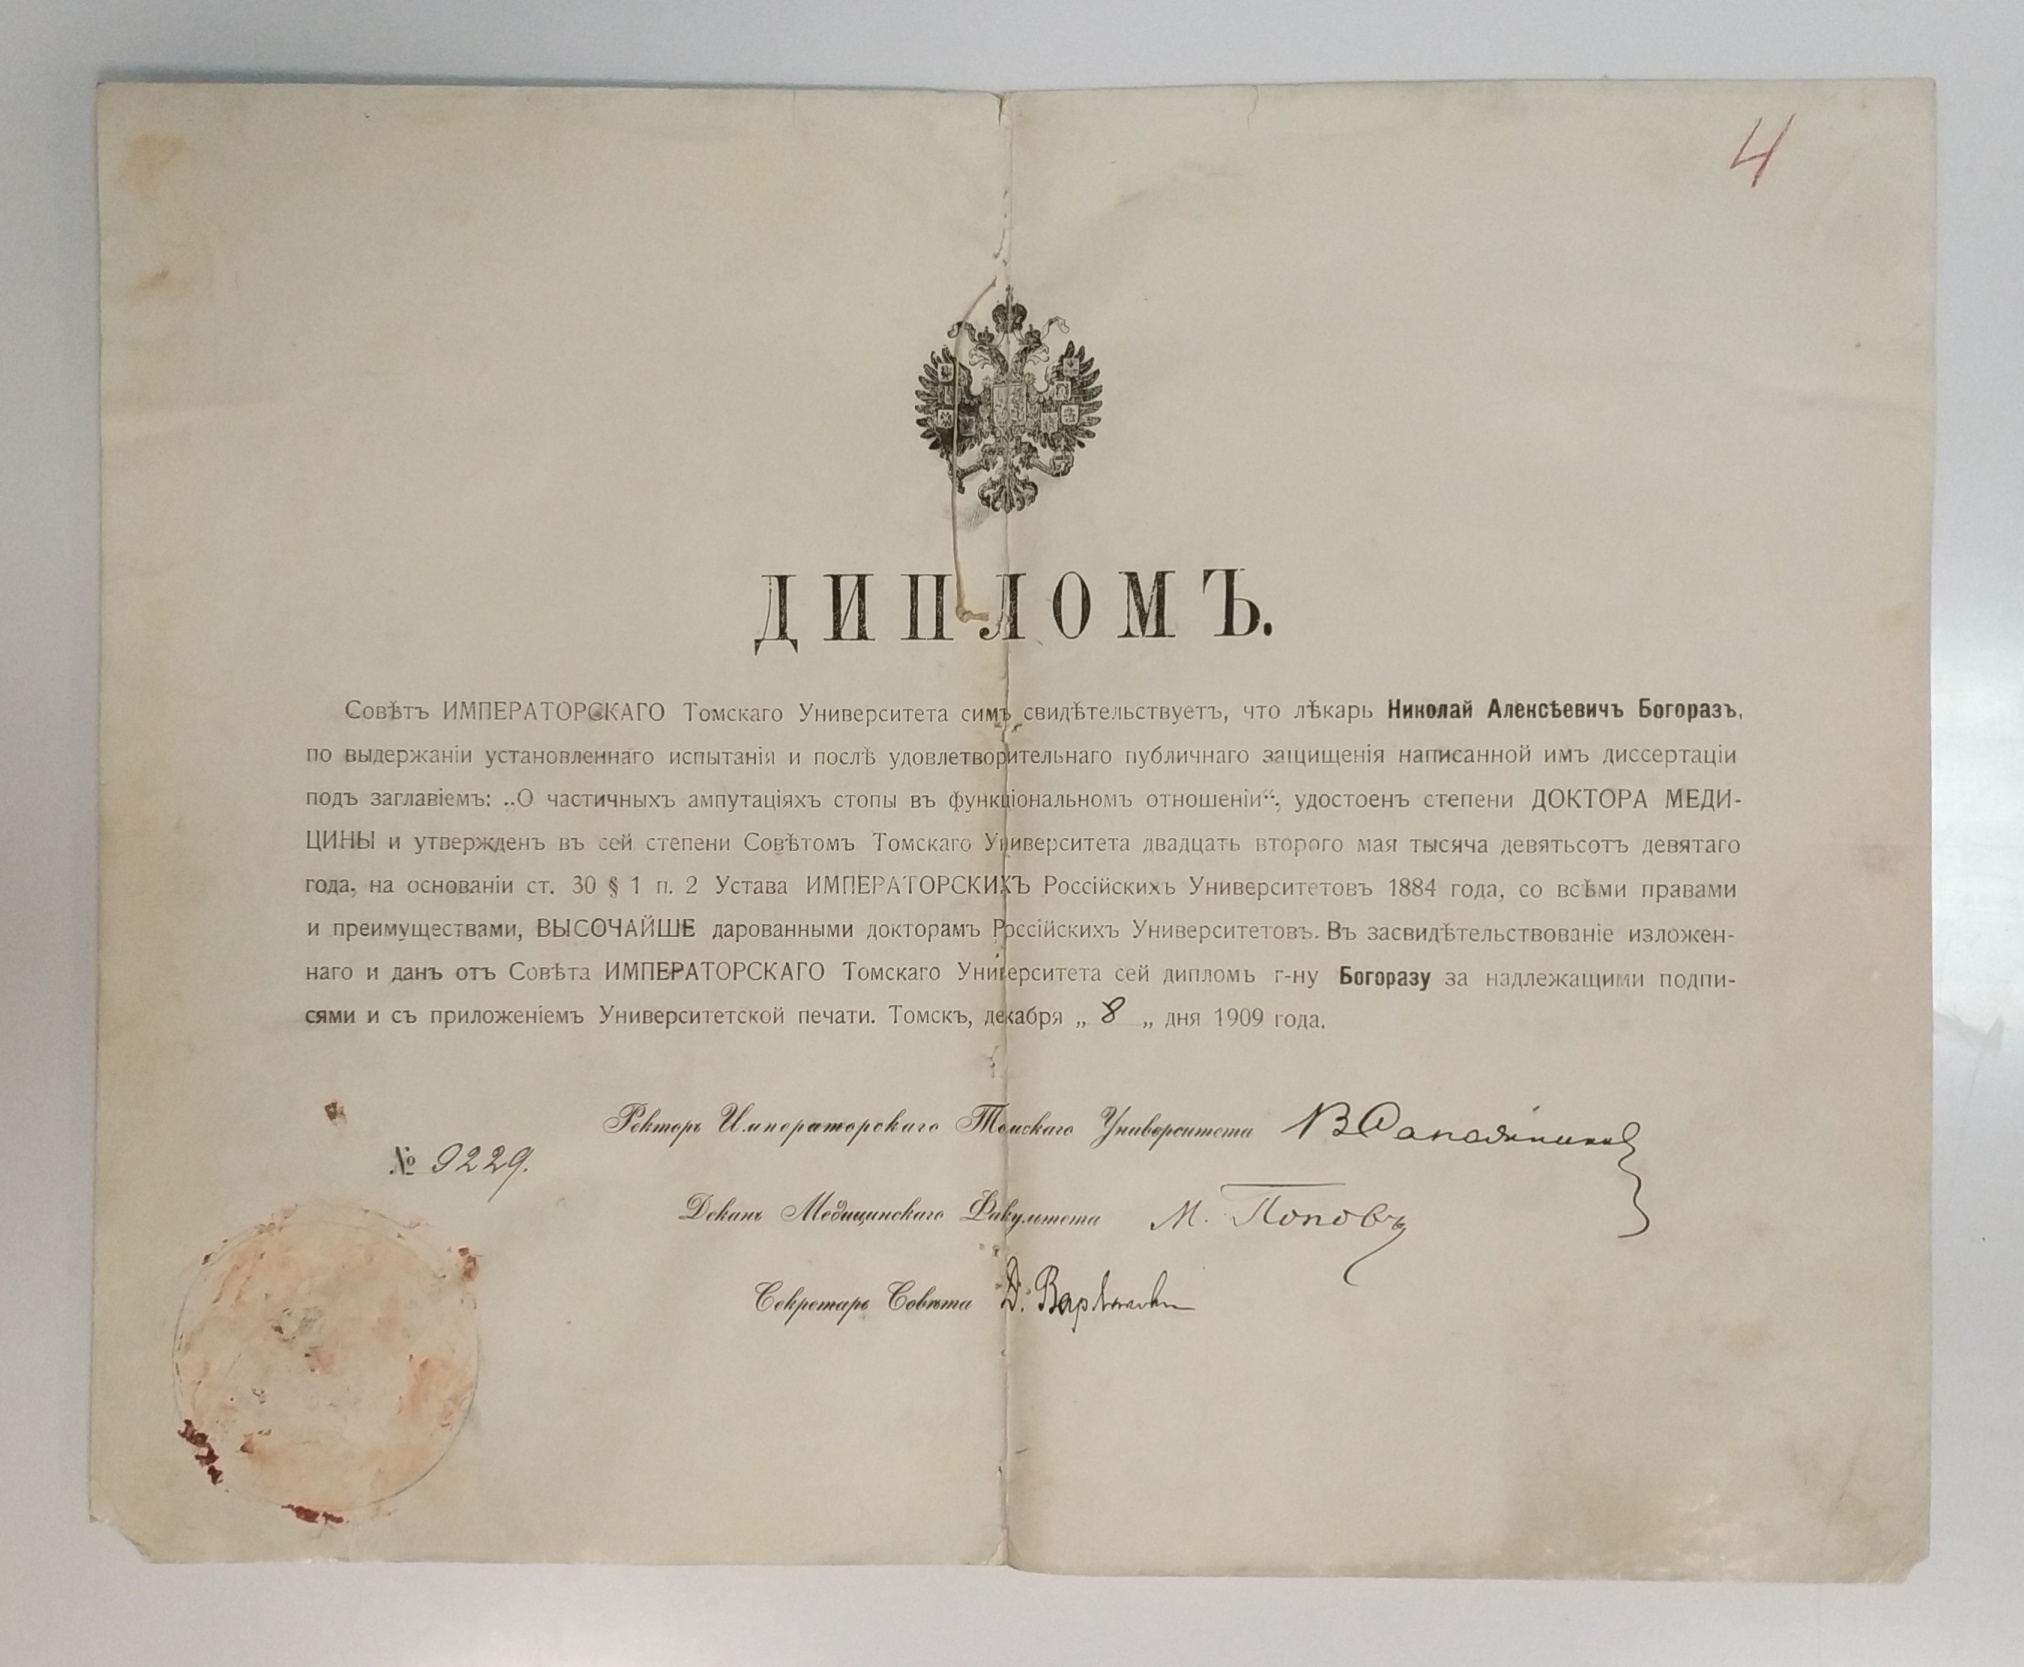 4
ДИПЛОМЪ.
Совѣтъ ИМПЕРАТОРСКАГО Томскаго Университета симъ свидѣтельствуетъ, что лѣкарь Николай Алексѣевичъ Богоразъ,
по выдержаніи установленнаго испытанія и послѣ удовлетворительнаго публичнаго защищенія написанной имъ диссертаціи
подъ заглавіемъ: „О частичныхъ ампутаціяхъ стопы въ функціональномъ отношеніи“, удостоенъ степени ДОКТОРА МЕДИ-
ЦИНЫ и утвержденъ въ сей степени Совѣтомъ Томскаго Университета двадцать второго мая тысяча девятьсотъ девятаго
года, на основаніи ст. 30 § 1 п. 2 Устава ИМПЕРАТОРСКИХЪ Россійскихъ Университетовъ 1884 года, со всѣми правами
и преимуществами, ВЫСОЧАЙШЕ дарованными докторамъ Россійскихъ Университетовъ. Въ засвидѣтельствованіе изложен-
наго и данъ отъ Совѣта ИМПЕРАТОРСКАГО Томскаго Университета сей дипломъ г-ну Богоразу за надлежащими подпи-
сями и съ приложеніемъ Университетской печати. Томскъ, декабря „ 8 „ дня 1909 года.
Ректоръ Императорскаго Томскаго Университета
№ 9229.
Деканъ Медицинскаго Факультета М. Поповъ
Секретарь Совѣта Д.